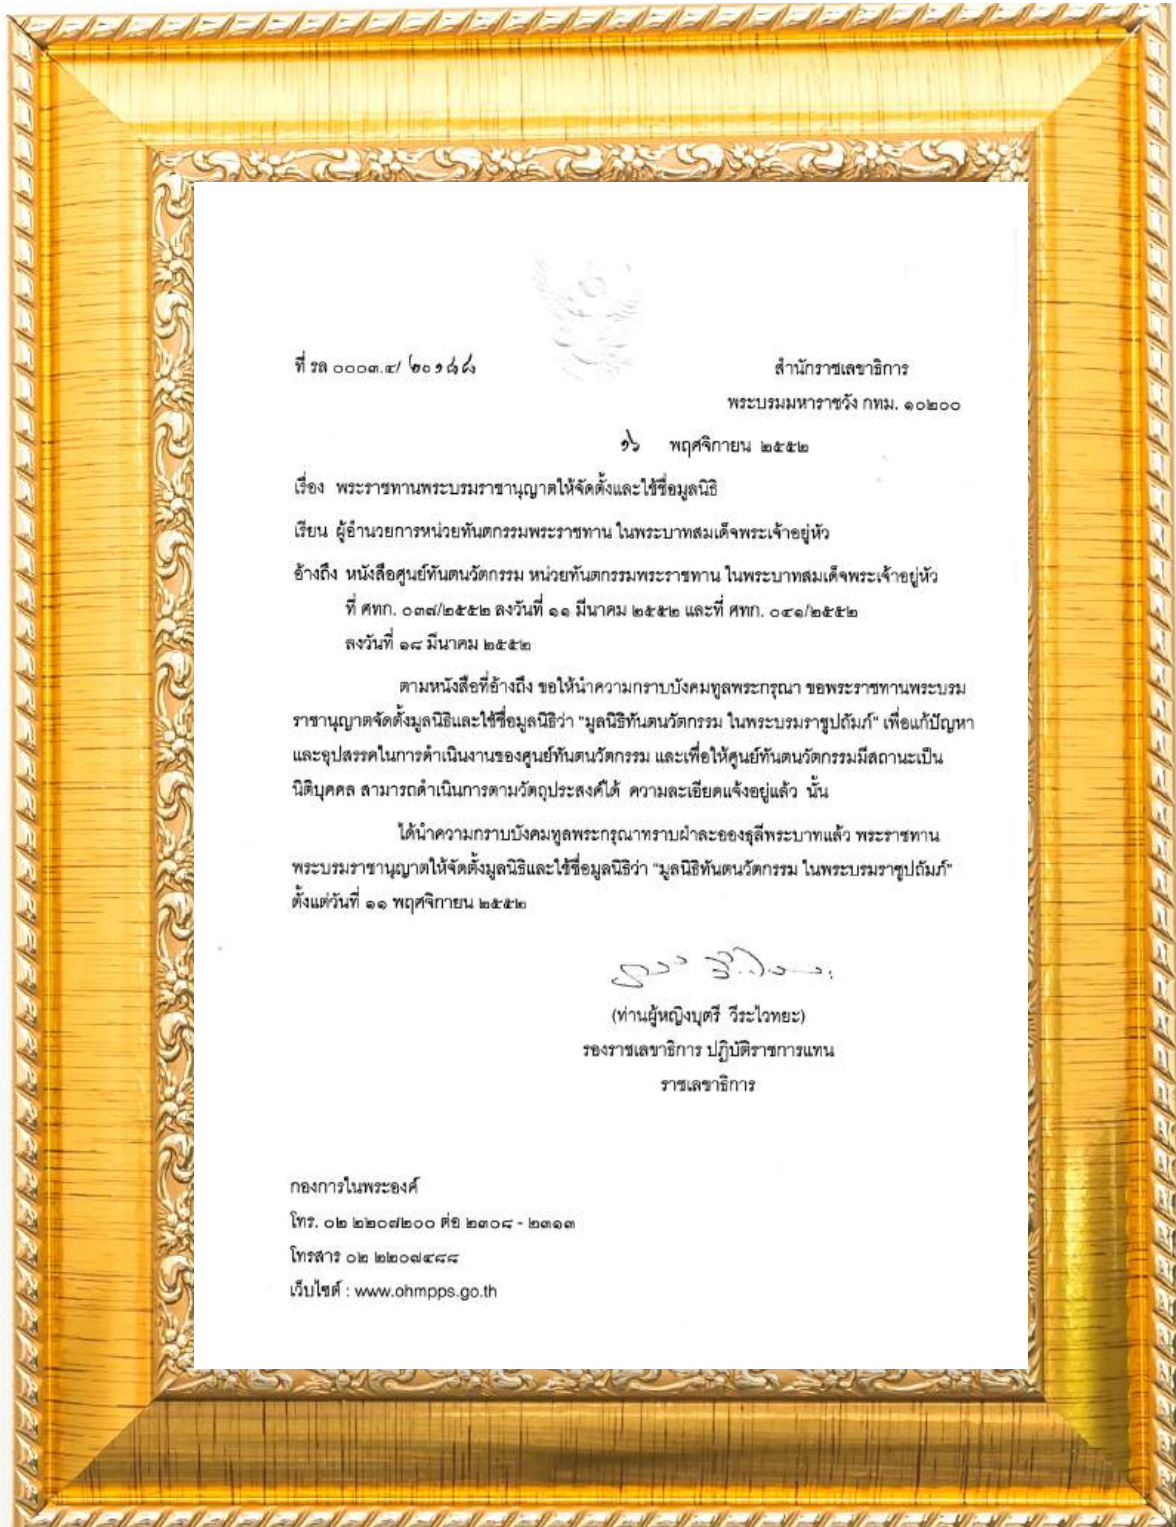 ที่ รล ๐๐๐๓.๔/ ๒๐๑๘๘
สำนักราชเลขาธิการ
พระบรมมหาราชวัง กทม. ๑๐๒๐๐
๑๖ พฤศจิกายน ๒๕๕๒
เรื่อง พระราชทานพระบรมราชานุญาตให้จัดตั้งและใช้ชื่อมูลนิธิ
เรียน ผู้อำนวยการหน่วยทันตกรรมพระราชทาน ในพระบาทสมเด็จพระเจ้าอยู่หัว
อ้างถึง หนังสือศูนย์ทันตนวัตกรรม หน่วยทันตกรรมพระราชทาน ในพระบาทสมเด็จพระเจ้าอยู่หัว
ที่ ศทก. ๐๓๗/๒๕๕๒ ลงวันที่ ๑๑ มีนาคม ๒๕๕๒ และที่ ศทก. ๐๔๑/๒๕๕๒
ลงวันที่ ๑๘ มีนาคม ๒๕๕๒
ตามหนังสือที่อ้างถึง ขอให้นำความกราบบังคมทูลพระกรุณา ขอพระราชทานพระบรม
ราชานุญาตจัดตั้งมูลนิธิและใช้ชื่อมูลนิธิว่า “มูลนิธิทันตนวัตกรรม ในพระบรมราชูปถัมภ์” เพื่อแก้ปัญหา
และอุปสรรคในการดำเนินงานของศูนย์ทันตนวัตกรรม และเพื่อให้ศูนย์ทันตนวัตกรรมมีสถานะเป็น
นิติบุคคล สามารถดำเนินการตามวัตถุประสงค์ได้ ความละเอียดแจ้งอยู่แล้ว นั้น
ได้นำความกราบบังคมทูลพระกรุณาทราบฝ่าละอองธุลีพระบาทแล้ว พระราชทาน
พระบรมราชานุญาตให้จัดตั้งมูลนิธิและใช้ชื่อมูลนิธิว่า “มูลนิธิทันตนวัตกรรม ในพระบรมราชูปถัมภ์”
ตั้งแต่วันที่ ๑๑ พฤศจิกายน ๒๕๕๒
(ท่านผู้หญิงบุตรี วีระไวทยะ)
รองราชเลขาธิการ ปฏิบัติราชการแทน
ราชเลขาธิการ
กองการในพระองค์
โทร. ๐๒ ๒๒๐๗๒๐๐ ต่อ ๒๓๐๘ - ๒๓๑๓
โทรสาร ๐๒ ๒๒๐๗๔๘๘
เว็บไซต์ : www.ohmpps.go.th